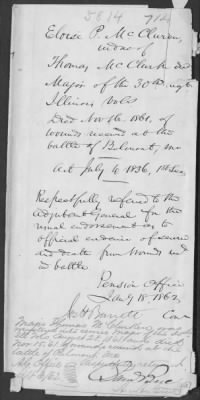 5814 714
Eloise P. McClurken,
widow of
Thomas McClurken
Major of the 30th regt
Illinois Vols
Died Nov 16. 1861. of
wounds received at the
battle of Belmont, Mo
Act July 4 1836, 1st Sec.
Respectfully referred to the
Adjutant General for the
usual endorsement as to
official evidence of service
and death from wounds recd
in battle.
Pension Office
Jany 18, 1862,
J. H. Barrett Com
Major Thomas McClurken
Illinois Vols
Nov 1861 of wounds received in the
battle of Belmont Mo
Adj. Office